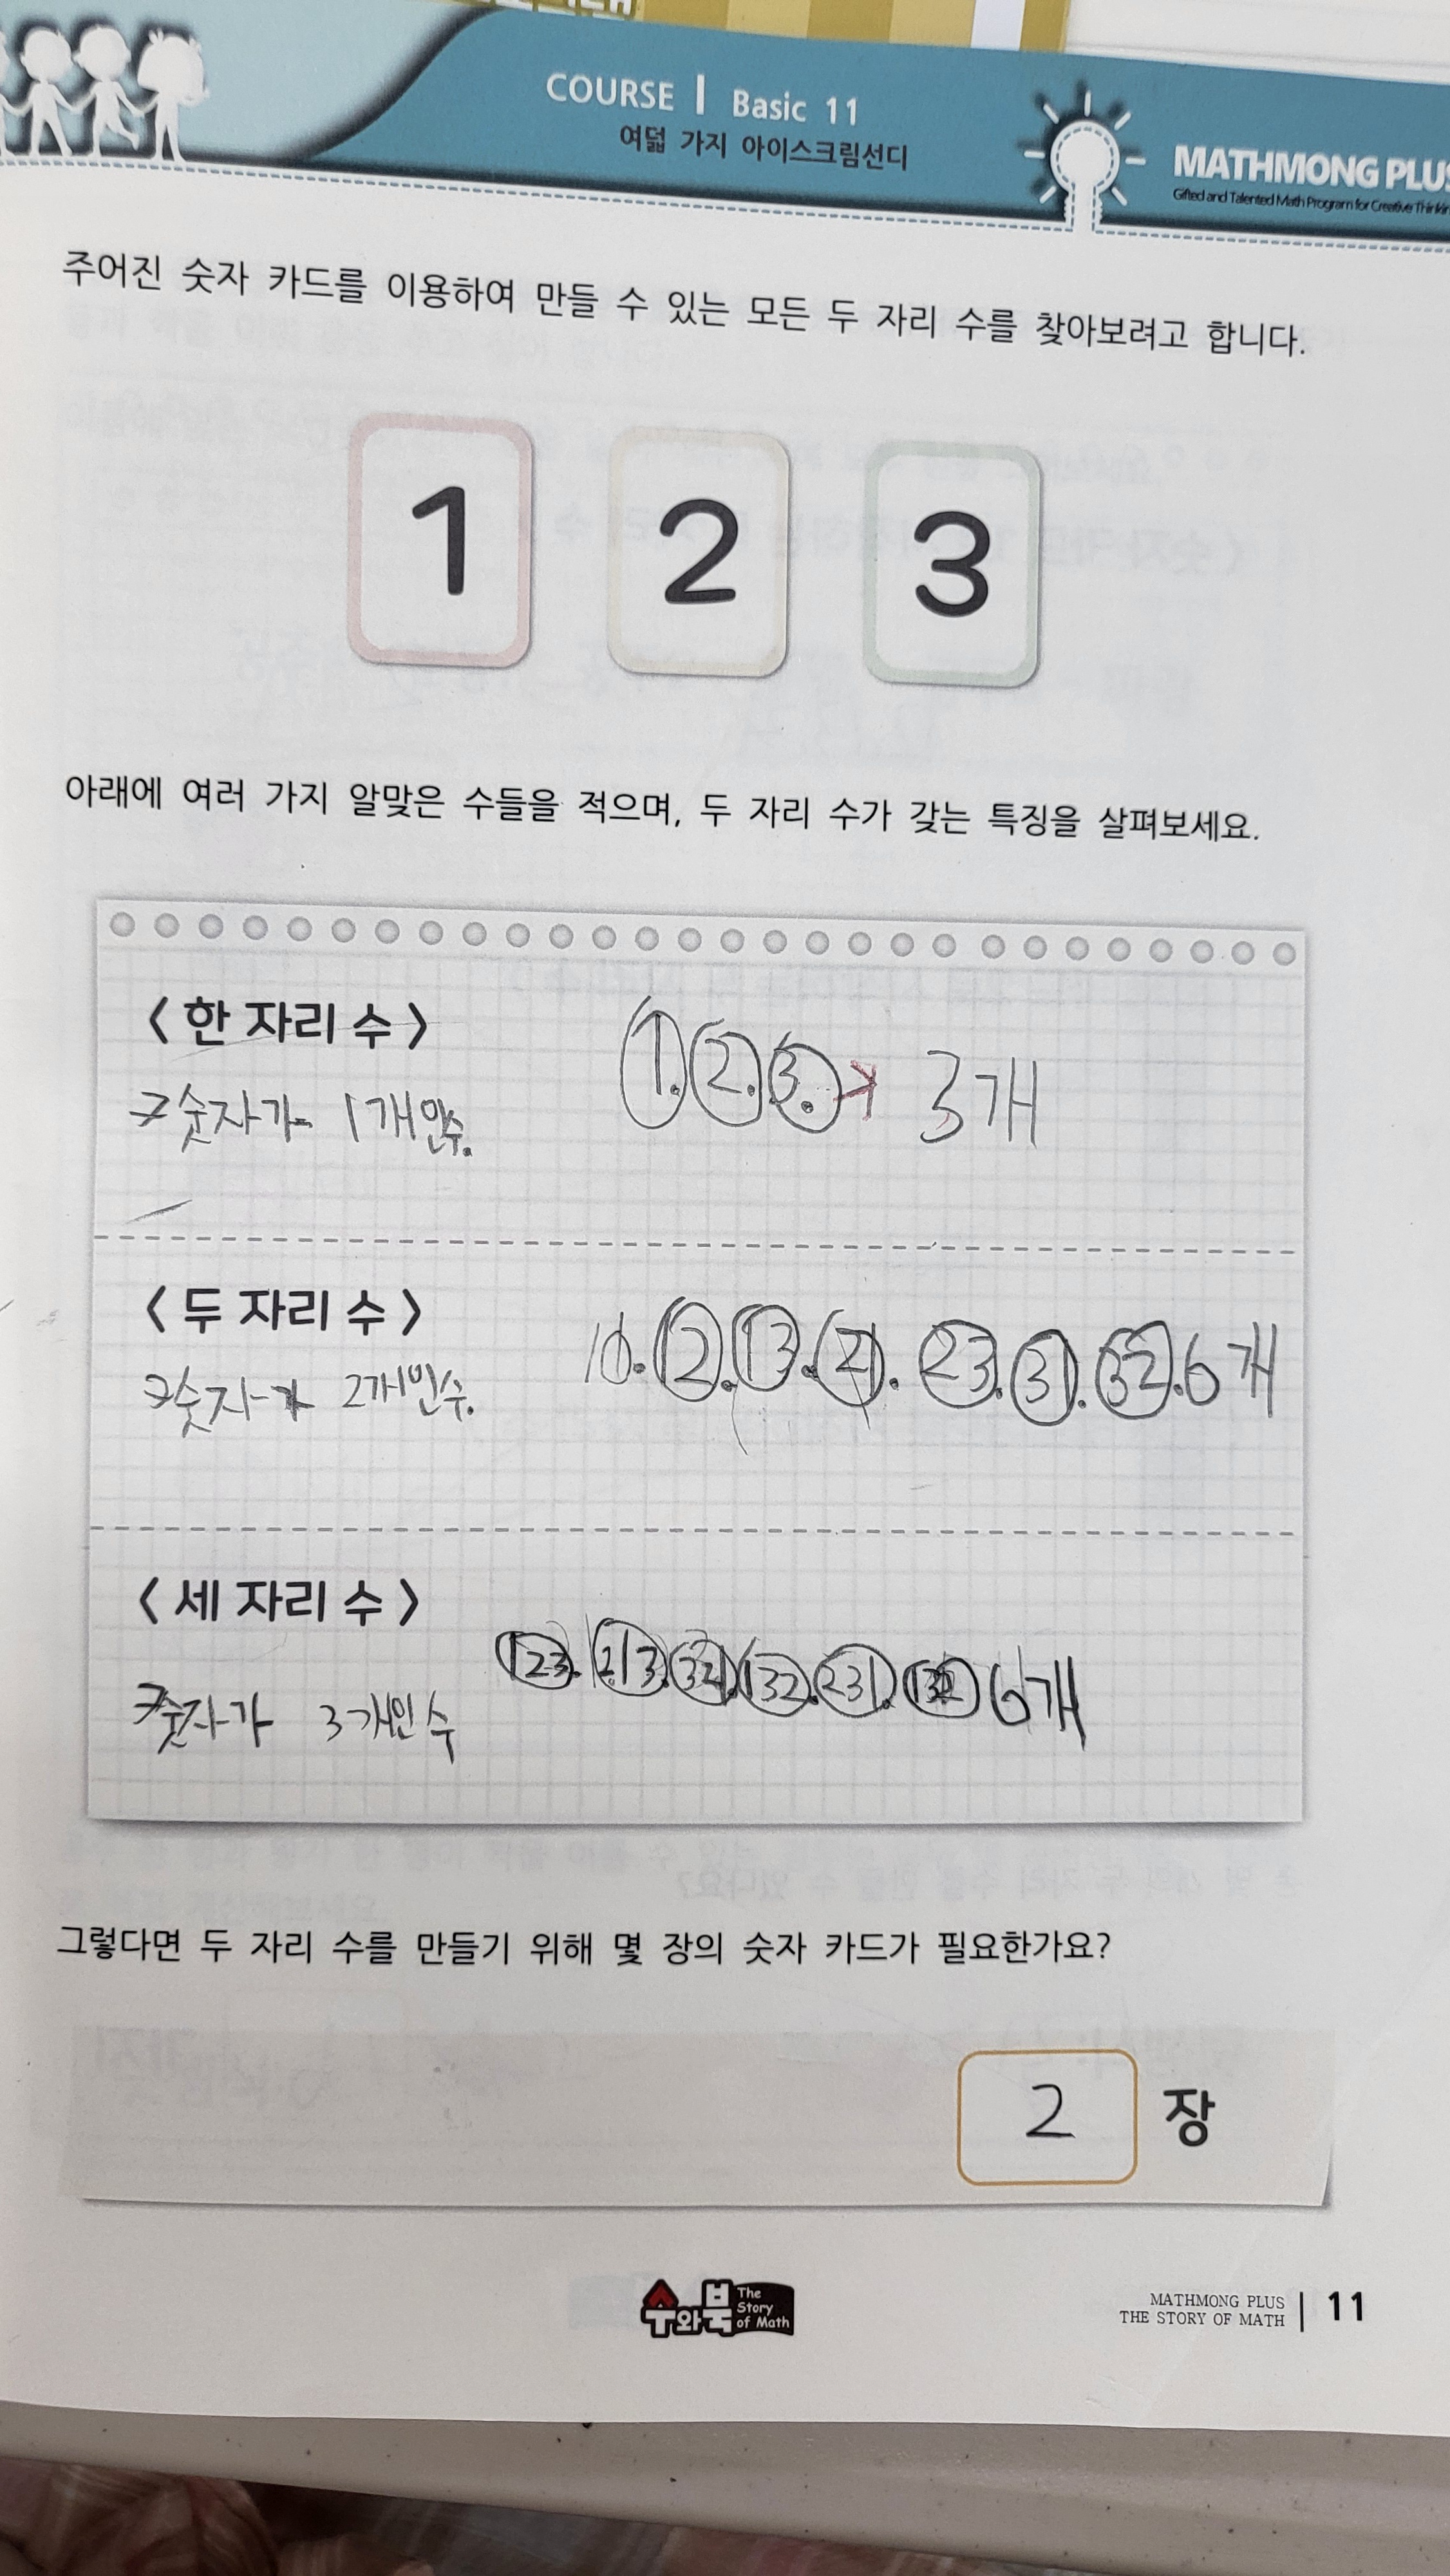 COURSE | Basic 11
여덟 가지 아이스크림선디
MATHMONG PLUS
Gifted and Talented Math Program for Creative Thinkin
주어진 숫자 카드를 이용하여 만들 수 있는 모든 두 자리 수를 찾아보려고 합니다.
1 2 3
아래에 여러 가지 알맞은 수들을 적으며, 두 자리 수가 갖는 특징을 살펴보세요.
< 한 자리 수 >
1. 2. 3. → 3개
숫자가 1개인수.
< 두 자리 수 >
10. 12. 13. 21. 23. 31. 32. 6개
숫자가 2개인수.
< 세 자리 수 >
123. 213. 321. 132. 231. 6개
숫자가 3개인수
그렇다면 두 자리 수를 만들기 위해 몇 장의 숫자 카드가 필요한가요?
2 장
수와북 The Story of Math
MATHMONG PLUS
THE STORY OF MATH | 11